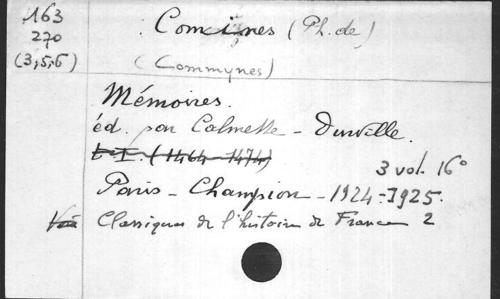 163
270
(3,5,6)
Comines (Ph. de)
(Commynes)
Mémoires.
éd. par Calmette - Durville.
t. I. (1464-1474)
3 vol. 16°
Paris - Champion - 1924-1925.
Classiques de l'histoire de France 2